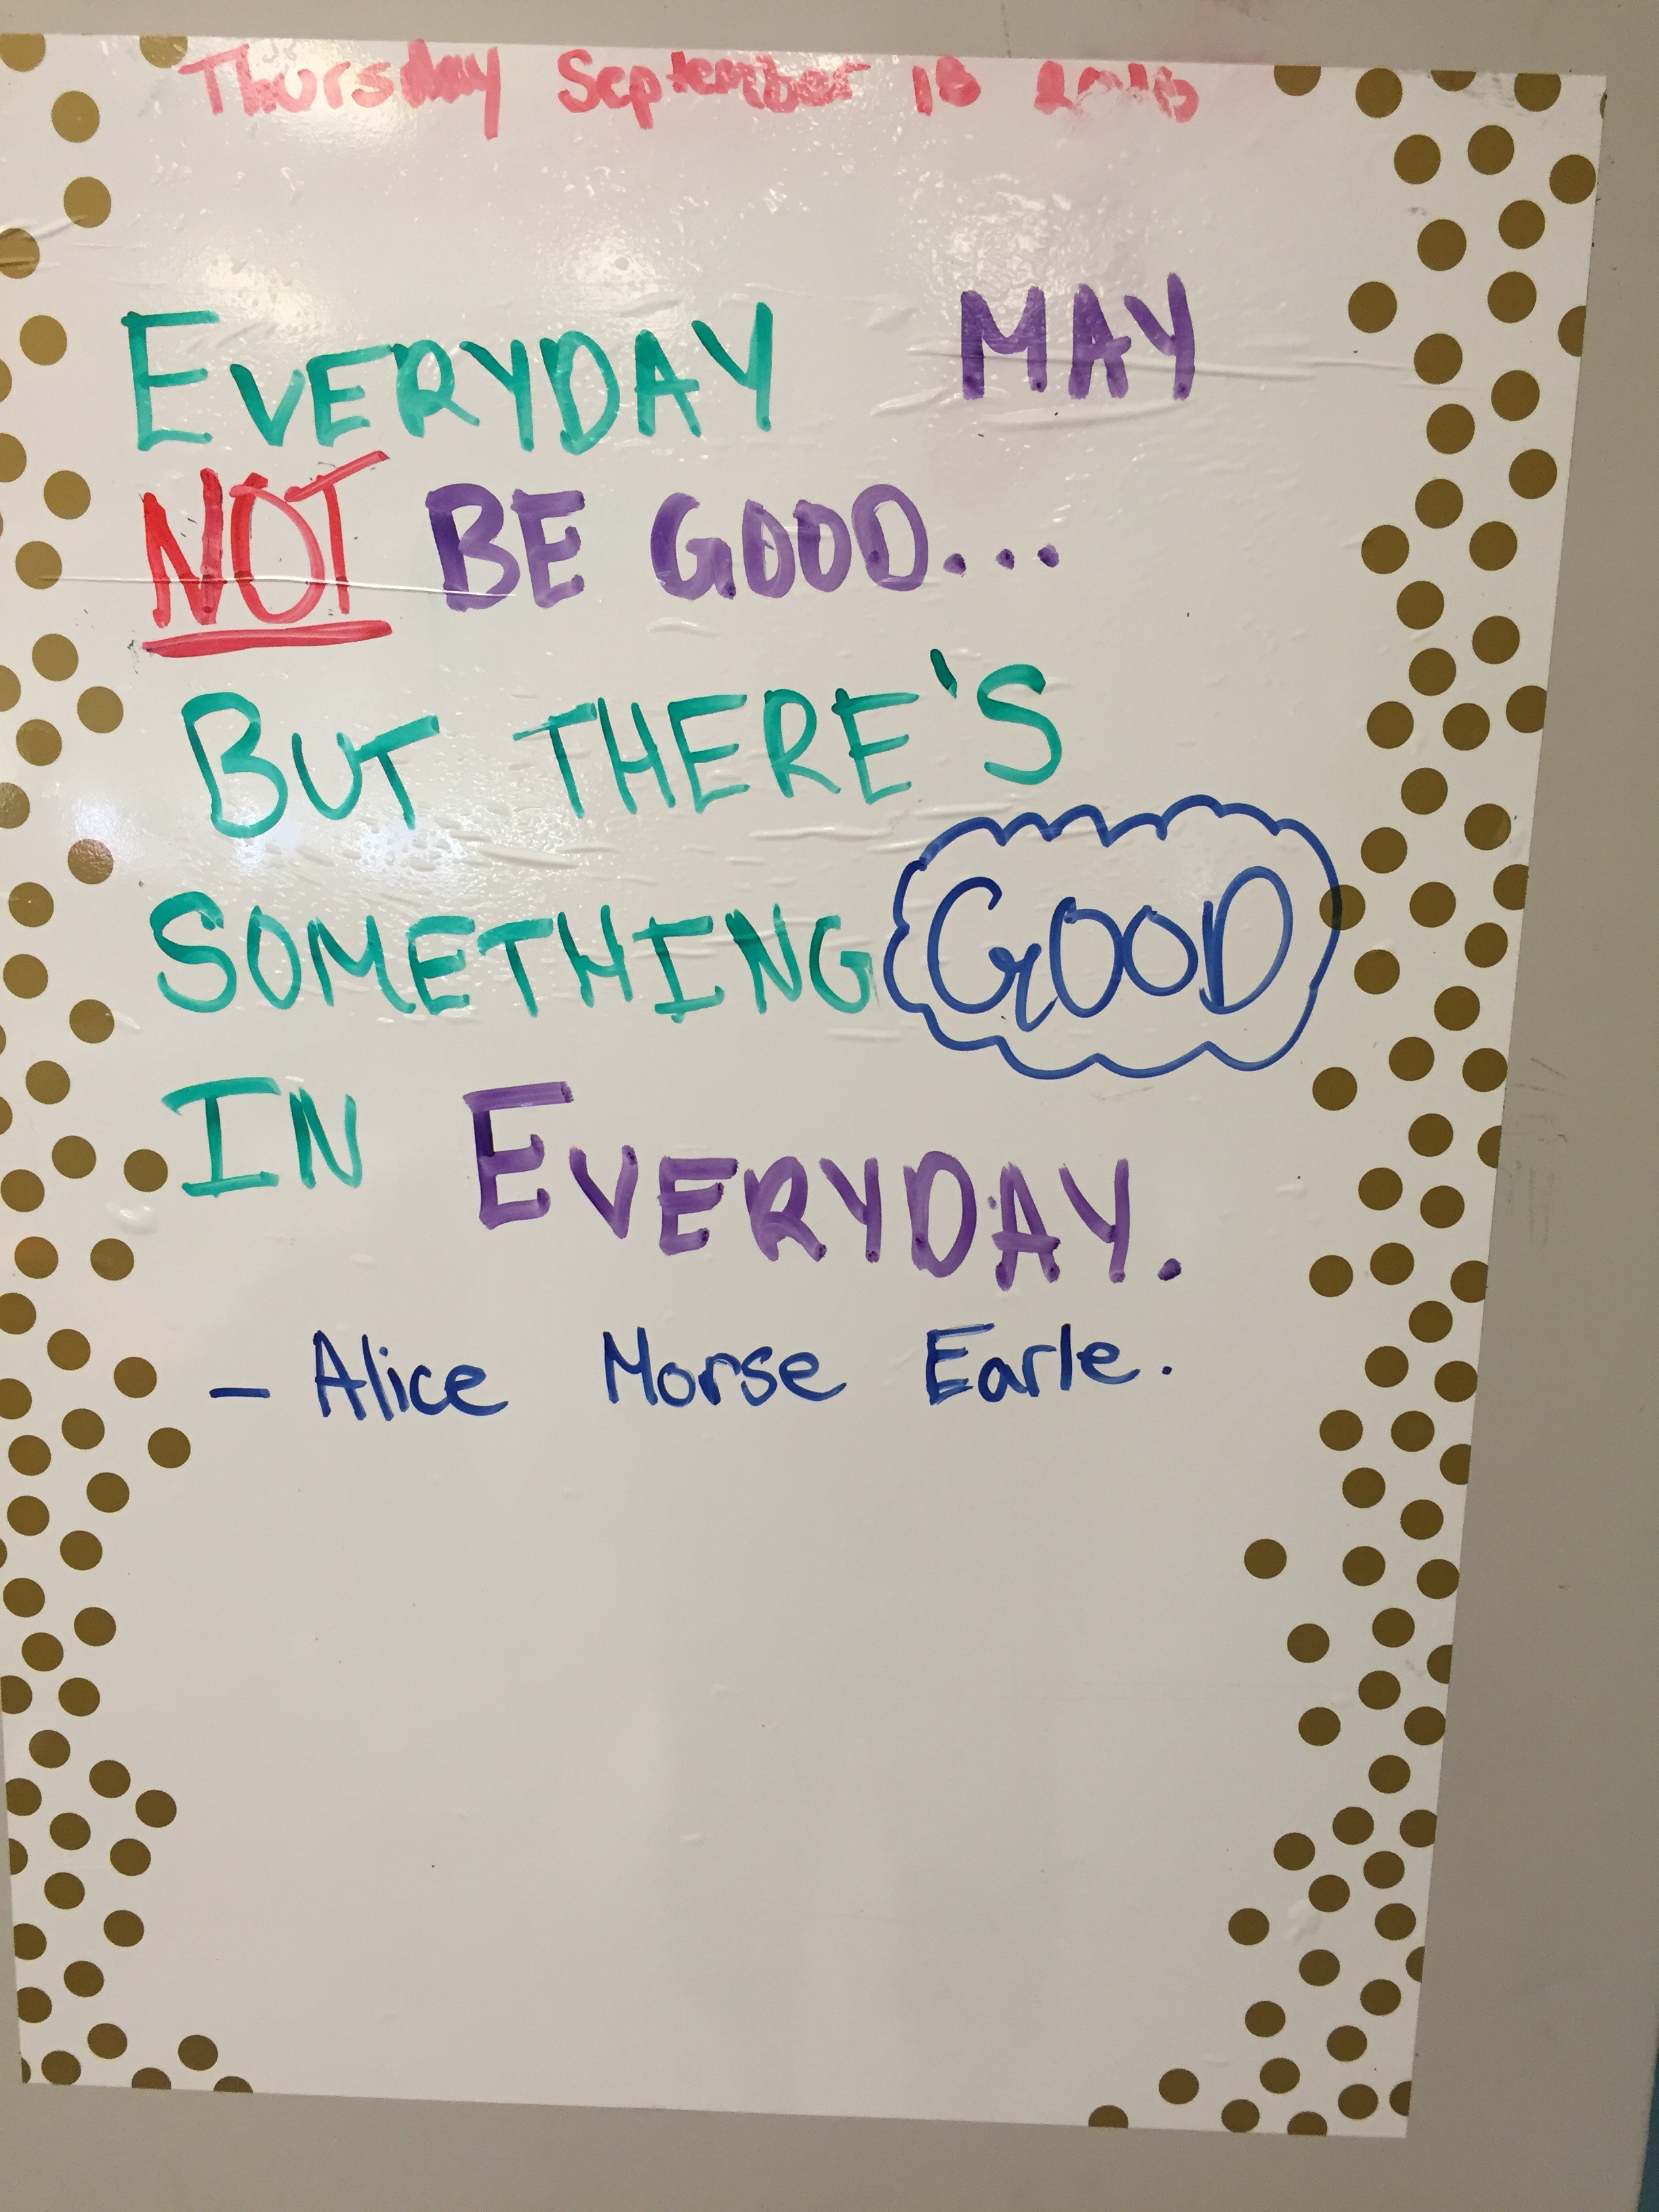 Thursday September 18
EVERYDAY MAY
NOT BE GOOD...
BUT THERE'S
SOMETHING GOOD
IN EVERYDAY.
- Alice Morse Earle.